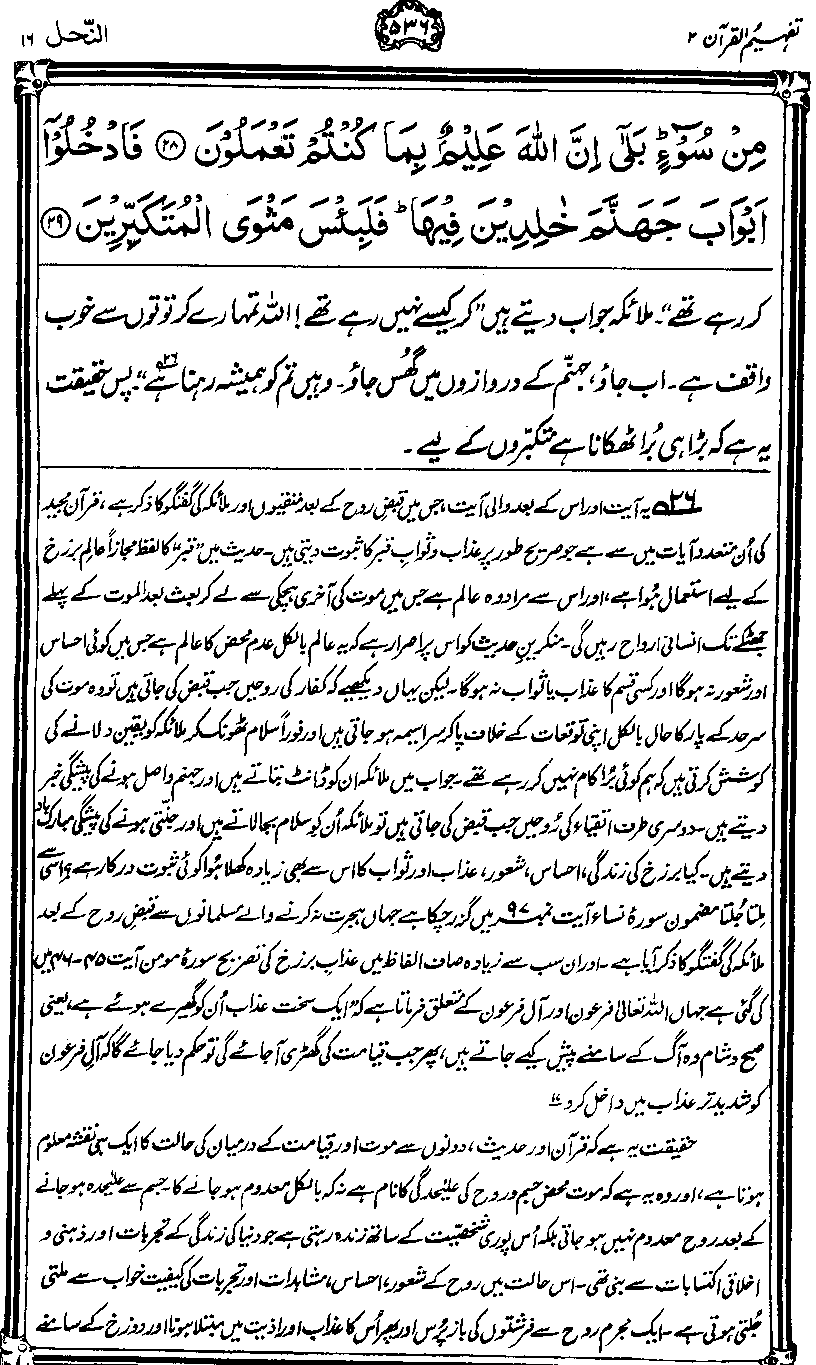 تفہیم القرآن ۲
۵۳۶
النّحل ۱۶
مِنْ سُوْٓءٍ ؕ بَلٰۤى اِنَّ اللّٰهَ عَلِيْمٌۢ بِمَا كُنْتُمْ تَعْمَلُوْنَ ﴿۲۸﴾ فَادْخُلُوْۤا
اَبْوَابَ جَهَنَّمَ خٰلِدِيْنَ فِيْهَا ؕ فَلَبِئْسَ مَثْوَى الْمُتَكَبِّرِيْنَ ﴿۲۹﴾
کر رہے تھے“۔ ملائکہ جواب دیتے ہیں ”کر کیسے نہیں رہے تھے! اللہ تمہارے کرتوتوں سے خوب
واقف ہے۔ اب جاؤ، جہنّم کے دروازوں میں گھُس جاؤ۔ وہیں تم کو ہمیشہ رہنا ہے“۲۶۔ پس حقیقت
یہ ہے کہ بڑا ہی بُرا ٹھکانا ہے متکبّروں کے لیے۔
۲۶ یہ آیت اور اس کے بعد والی آیت، جس میں قبضِ روح کے بعد متقیوں اور ملائکہ کی گفتگو کا ذکر ہے، قرآن مجید
کی اُن متعدد آیات میں سے ہے جو صریح طور پر عذاب و ثوابِ قبر کا ثبوت دیتی ہیں۔ حدیث میں ”قبر“ کا لفظ مجازاً عالمِ برزخ
کے لیے استعمال ہُوا ہے، اور اس سے مراد وہ عالم ہے جس میں موت کی آخری ہچکی سے لے کر بعث بعد الموت کے پہلے
جھٹکے تک انسانی ارواح رہیں گی۔ منکرینِ حدیث کو اس پر اصرار ہے کہ یہ عالم بالکل عدمِ محض کا عالم ہے جس میں کوئی احساس
اور شعور نہ ہوگا اور کسی قسم کا عذاب یا ثواب نہ ہوگا۔ لیکن یہاں دیکھیے کہ کفار کی روحیں جب قبض کی جاتی ہیں تو وہ موت کی
سرحد کے پار کا حال بالکل اپنی توقعات کے خلاف پا کر سراسیمہ ہو جاتی ہیں اور فوراً سلام ٹھونک کر ملائکہ کو یقین دلانے کی
کوشش کرتی ہیں کہ ہم کوئی بُرا کام نہیں کر رہے تھے۔ جواب میں ملائکہ ان کو ڈانٹ بتاتے ہیں اور جہنم واصل ہونے کی پیشگی خبر
دیتے ہیں۔ دوسری طرف اتقیاء کی رُوحیں جب قبض کی جاتی ہیں تو ملائکہ اُن کو سلام بجا لاتے ہیں اور جنّتی ہونے کی پیشگی مبارکباد
دیتے ہیں۔ کیا برزخ کی زندگی، احساس، شعور، عذاب اور ثواب کا اس سے بھی زیادہ کھلا ہُوا کوئی ثبوت درکار ہے؟ اسی سے
مِلتا جُلتا مضمون سورۂ نساء آیت نمبر ۹۷ میں گزر چکا ہے جہاں ہجرت نہ کرنے والے مسلمانوں سے قبضِ روح کے بعد
ملائکہ کی گفتگو کا ذکر آیا ہے۔ اور ان سب سے زیادہ صاف الفاظ میں عذابِ برزخ کی تصریح سورۂ مومن آیت ۴۵۔۴۶ میں
کی گئی ہے جہاں اللہ تعالیٰ فرعون اور آلِ فرعون کے متعلق فرماتا ہے کہ ”ایک سخت عذاب اُن کو گھیرے ہوئے ہے، یعنی
صبح و شام وہ آگ کے سامنے پیش کیے جاتے ہیں، پھر جب قیامت کی گھڑی آجائے گی تو حکم دیا جائے گا کہ آلِ فرعون
کو شدید تر عذاب میں داخل کرو“۔
حقیقت یہ ہے کہ قرآن اور حدیث، دونوں سے موت اور قیامت کے درمیان کی حالت کا ایک ہی نقشہ معلوم
ہوتا ہے، اور وہ یہ ہے کہ موت محض جسم و روح کی علیٰحدگی کا نام ہے نہ کہ بالکل معدوم ہو جانے کا۔ جسم سے علیٰحدہ ہو جانے
کے بعد روح معدوم نہیں ہو جاتی بلکہ اُس پوری شخصیّت کے ساتھ زندہ رہتی ہے جو دنیا کی زندگی کے تجربات اور ذہنی و
اخلاقی اکتسابات سے بنی تھی۔ اس حالت میں روح کے شعور، احساس، مشاہدات اور تجربات کی کیفیت خواب سے ملتی
جُلتی ہوتی ہے۔ ایک مجرم روح سے فرشتوں کی باز پُرس اور پھر اُس کا عذاب اور اذیت میں مبتلا ہونا اور دوزخ کے سامنے